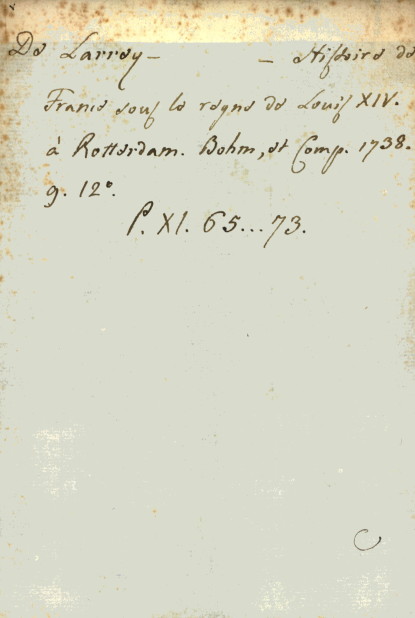 De Larrey – – Histoire de
France sous le regne de Louis XIV.
à Rotterdam. Bohm, et Comp. 1738.
9. 12°.
P. XI. 65...73.
C